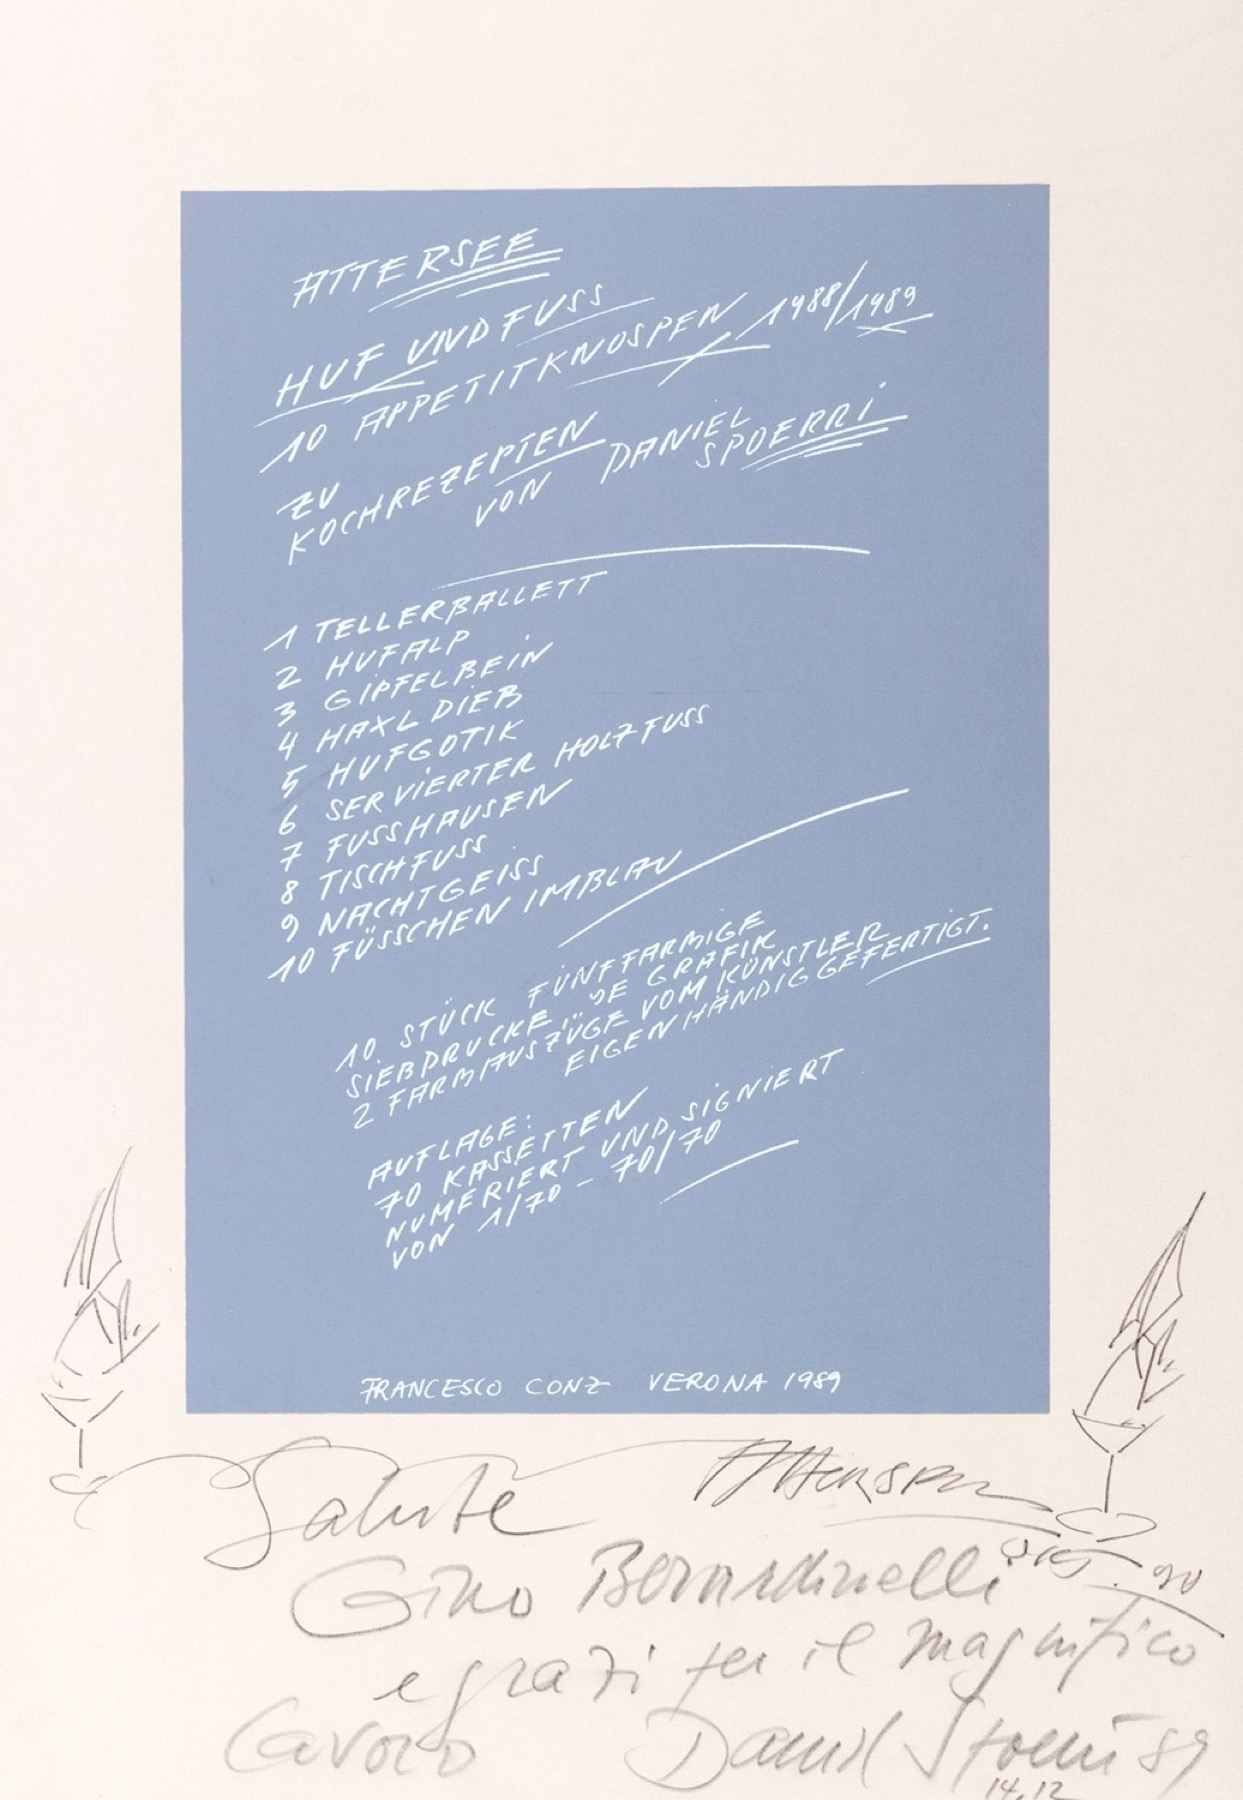 ATTERSEE
HUF UND FUSS
10 APPETITKNOSPEN 1988/1989
ZU
KOCHREZEPTEN
VON DANIEL
SPOERRI
1 TELLERBALLETT
2 HUFALP
3 GIPFELBEIN
4 HAXLDIEB
5 HUFGOTIK
6 SERVIERTER HOLZFUSS
7 FUSSHAUSEN
8 TISCHFUSS
9 NACHTGEISS
10 FÜSSCHEN IMBLAU
10 STÜCK FÜNFFARBIGE
SIEBDRUCKE, JE GRAFIK
2 FARBAUSZÜGE VOM KÜNSTLER
EIGENHÄNDIG GEFERTIGT.
AUFLAGE:
70 KASSETTEN
NUMERIERT UND SIGNIERT
VON 1/70 - 70/70
FRANCESCO CONZ VERONA 1989
Salute
Attersee
90
Gino Berardinelli
e grazi per il magnifico
lavoro Daniel Spoerri 89
14.12